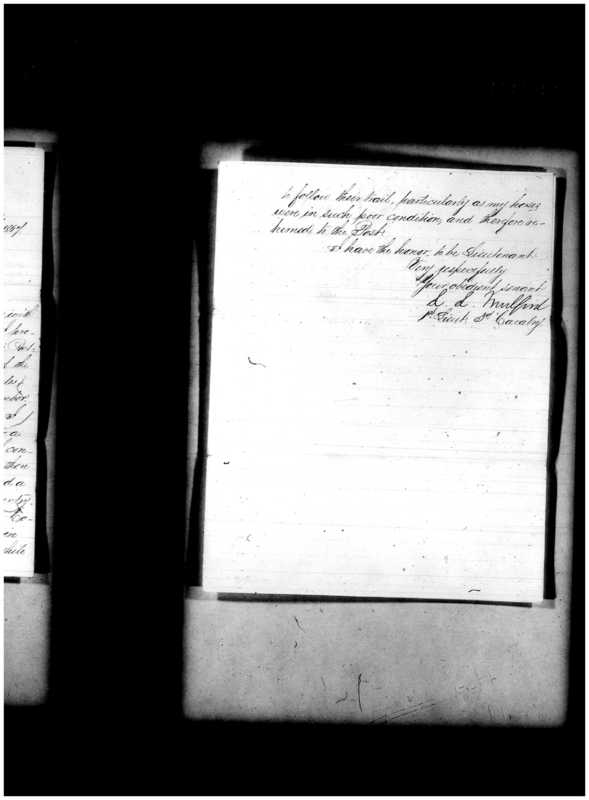 1867
with
the
a
con-
then
d a
Co-
en
while
to follow their trail, particularly as my horses
were in such poor condition, and therefore re-
turned to the Post.
I have the honor, to be Lieutenant
Very respectfully
Your obedient servant
L. L. Mulford
1st Lieut. 3d Cavalry